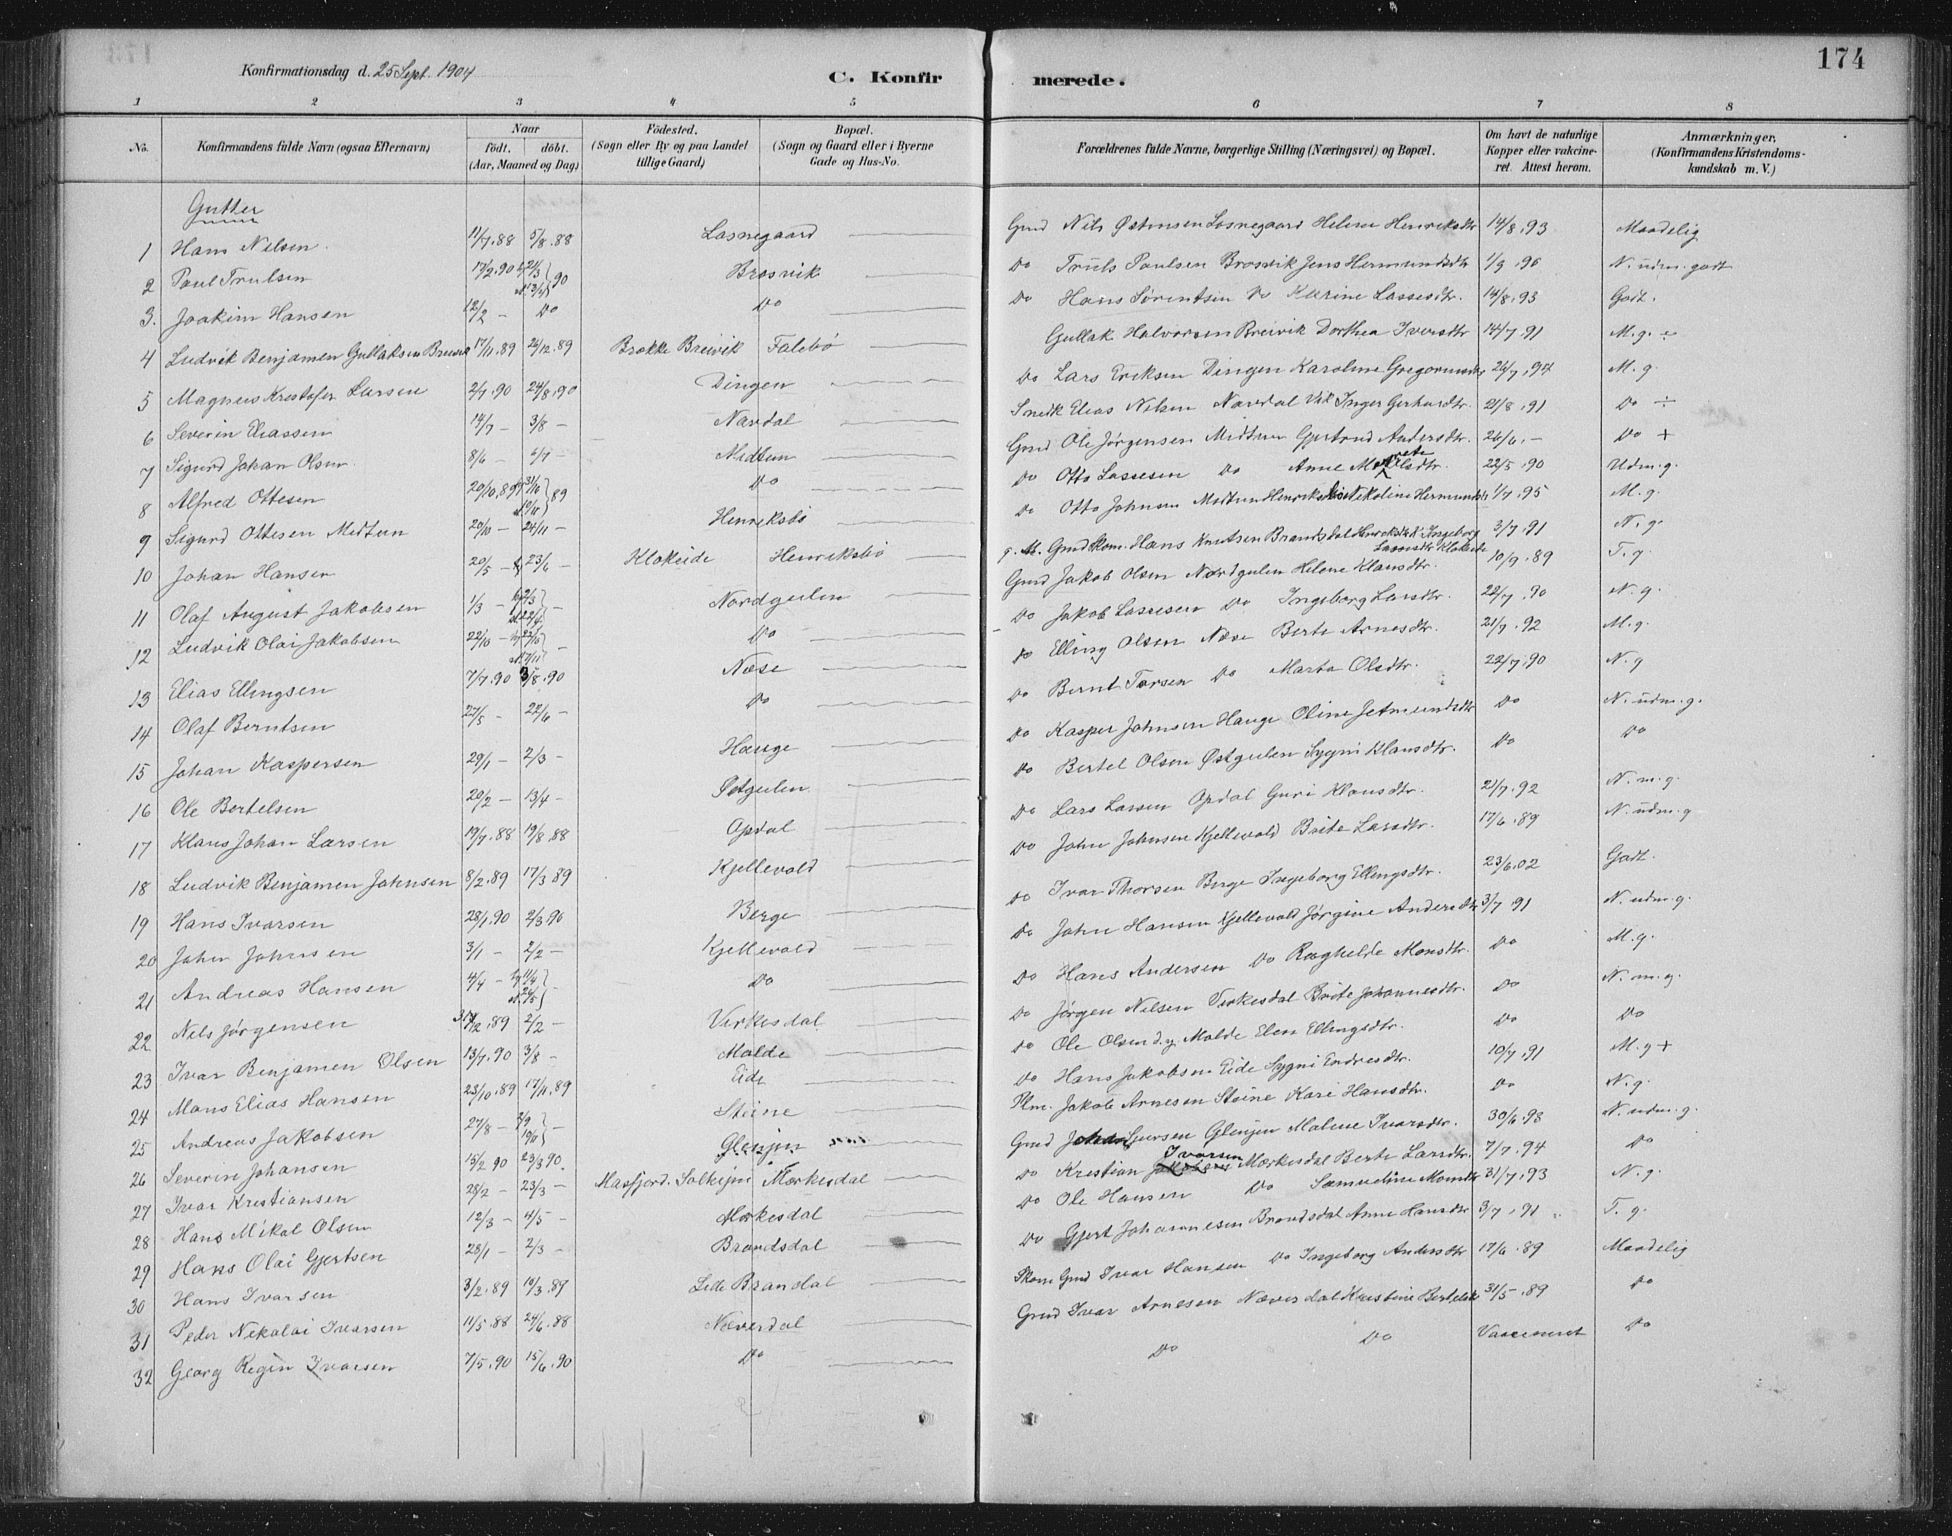 174
Konfirmationsdag d. 25 Sept. 1904
C. Konfirmerede.
1 2 3 4 5 6 7 8
No. Konfirmandens fulde Navn (ogsaa Efternavn) Naar født. døbt. (Aar, Maaned og Dag) Fødested. (Sogn eller By og paa Landet tillige Gaard) Bopæl. (Sogn og Gaard eller i Byerne Gade og Hus-No. Forældrenes fulde Navne, borgerlige Stilling (Næringsvei) og Bopæl. Om havt de naturlige Kopper eller vakcineret. Attest herom. Anmærkninger, (Konfirmandens Kristendomskundskab m. V.)
Gutter
1 Hans Nilsen 11/7.88 5/8.88 Losnegaard Gmd Nils Østensen Losnegaard Helene Henriksdtr 14/8.93 Maadelig
2 Paul Trulsen 17/2.90 90 Brosvik Do Truls Paulsen Brosvik Jens Hermundsdtr 1/9.96 N. udm. godt
3. Joakim Hansen 12/2 - Do Do Do Hans Sørentsen Do Karine Lassesdtr. 14/8.93 Godt.
4 Ludvik Benjamen Gullaksen Breivik 17/11.89 26/12.89 Brekke Breivik Falebø Gullak Halvorsen Breivik Dorthea Iversdtr 14/7.91 M.g. ÷
5 Magnus Kristofer Larsen 2/7.90 24/8.90 Dingen Do Lars Eriksen Dingen Karoline 24/7.94 M.g.
6 Severin Eliassen 14/7 - 3/8 - Navdal Smedk Elias Nilsen Navdal Inger Gerhardtr. 21/8.91 Do ÷
7 Sigurd Johan Olsen 8/6 - 6/7 - Midtun Gmd Ole Jørgensen Midtun Gjertrud Andersdtr. 26/6.- Do +
8 Alfred Ottesen 20/10.89 89 Do Do Otto Lassesen Do Anne Olsdtr. 22/5.90 Udm.g.
9 Sigurd Ottesen Midtun 20/10 - 24/11 - Henriksbø Do Otto Johnsen Midtun Nikoline 1/7.95 M.g.
10 Johan Hansen 20/5 - 23/6 - Klakeide Henriksbø Hans Knutsen Brandsdal Ingeborg Lassesdtr Klakeide 3/7.91 N.g.
11 Olaf August Jakobsen 1/3 - Nordgulen Gmd Jakob Olsen Nordgulen Helene Klausdtr. 10/9.89 T.g.
12 Ludvik Olai Jakobsen 22/10 - Do Do Jakob Lassesen Do Ingeborg Larsdtr. 22/7.90 N.g.
13 Elias Ellingsen 7/7.90 3/8.90 Næse Do Elling Olsen Næse Berte Arnesdtr. 21/7.92 M.g.
14 Olaf Berntsen 27/5 - 22/6 - Do Do Bernt Torsen Do Marta Olsdtr. 22/7.90 N.g
15 Johan Kaspersen 29/1 - 2/3 - Hauge Do Kasper Johnsen Hauge Oline Jetmundsdtr Do N. udm.g.
16 Ole Bertelsen 20/2 - 13/4 - Østgulen Do Bertel Olsen Østgulen Sygni Klausdtr. Do Do
17 Klaus Johan Larsen 19/7.88 19/8.88 Opdal Do Lars Larsen Opdal Guri Klausdtr. 21/7.92 N.m.g.
18 Ludvik Benjamen Johnsen 8/2.89 17/3.89 Kjellevold Do John Johnsen Kjellevold Brite Larsdtr. 17/6.89 N. udm.g
19 Hans Ivarsen 28/1.90 2/3.90 Berge Do Ivar Thorsen Berge Ingeborg Ellingsdtr. 23/6.02 Godt.
20 John Johnsen 3/1 - 2/2 - Kjellevold Do John Hansen Kjellevold Jørgine Andersdtr 3/7.91 N. udm.g.
21 Andreas Hansen 4/4 - Do Do Hans Andersen Do Raghilde Monsdtr. Do M.g.
22 Nils Jørgensen 2/2 - Virkesdal Do Jørgen Nilsen Virkesdal Brite Johannesdtr. Do N.m.g.
23 Ivar Benjamen Olsen 13/7.90 3/8 - Molde Do Ole Olsen d.y. Molde Elen Ellingsdtr. Do Do
24 Mons Elias Hansen 23/10.89 17/11.89 Eide Do Hans Jakobsen Eide Sygni Endresdtr. 10/7.91 M.g +
25 Andreas Jakobsen 27/8 - Steine Plm. Jakob Arnesen Steine Kari Hansdtr. Do N.g.
26 Severin Johansen 15/2 90 23/3 90. Glenjen Gmd Johan Sjursen Glenjen Malene Ivarsdtr. 30/6.93 N. udm.g.
27 Ivar Kristiansen 28/2 - 23/3 - Masfjord. Solheim Mærkesdal Do Kristian Ivarsen Mærkesdal Berte Larsdtr. 7/7.94 Do
28 Hans Mikal Olsen 12/3 - 4/5 - Mærkesdal Do Ole Hansen Do Samueline Monsdtr 31/7.93 N.g.
29 Hans Olai Gjertsen 28/1 - 2/3 - Brandsdal Do Gjert Johannesen Brandsdal Anne Hansdtr 3/7.91 T.g.
30 Hans Ivarsen 3/2.89 10/3.89 Lide Brandal Gmd Ivar Hansen Do Ingeborg Andersdtr 17/6.89 Maadelig
31 Peder Nikolai Ivarsen 11/5.88 24/6.88 Næverdal Gmd Ivar Arnesen Næverdal Kristine Bertelsdtr 31/5.89 Do
32 Georg Regin Ivarsen 7/5.90 15/6.90 Do Do Do Vaccineret Do